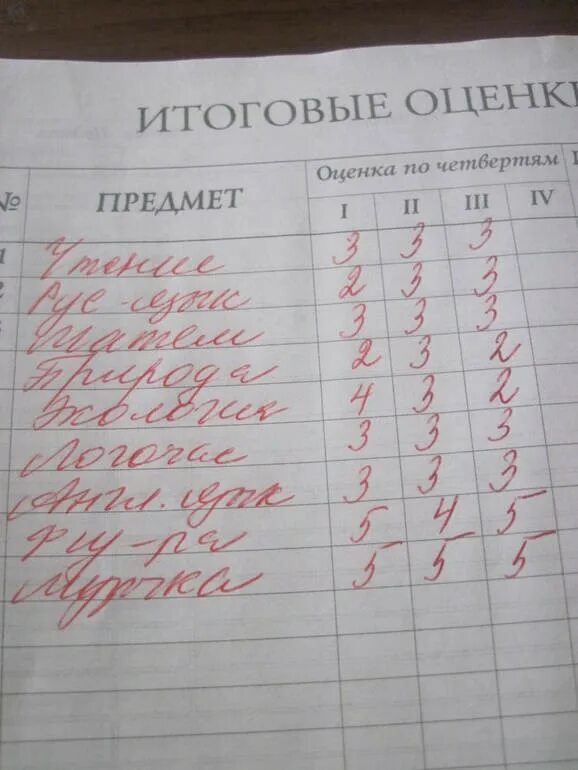 ИТОГОВЫЕ ОЦЕНКИ
№ ПРЕДМЕТ Оценка по четвертям
I II III IV
1 Чтение 3 3 3
2 Рус-язык 2 3 3
3 Матем 3 3 3
Природа 2 3 2
Экология 4 3 2
Логочас 3 3 3
Англ. язык 3 3 3
Физ-ра 5 4 5
5 5 5